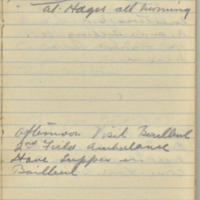 at Hages all morning
afternoon Visit Bailleul
2nd Field Ambulance
Have supper in
Bailleul